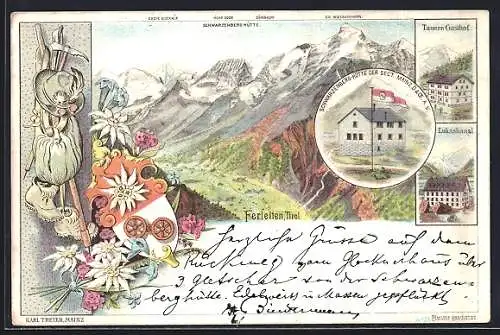 SCHWARZENBERG HÜTTE.
Tauern Gasthof.
SCHWARZENBERG-HÜTTE DER SECT. MAINZ D. & OE. A. V.
Lukashansl.
Ferleiten, Tirol
Herzliche Grüsse auf dem
Rückweg vom Glocknerhaus über
3 Gletscher von der Schwarzen-
berghütte. Edelweiss in Massen gepflückt.
KARL THEYER, MAINZ